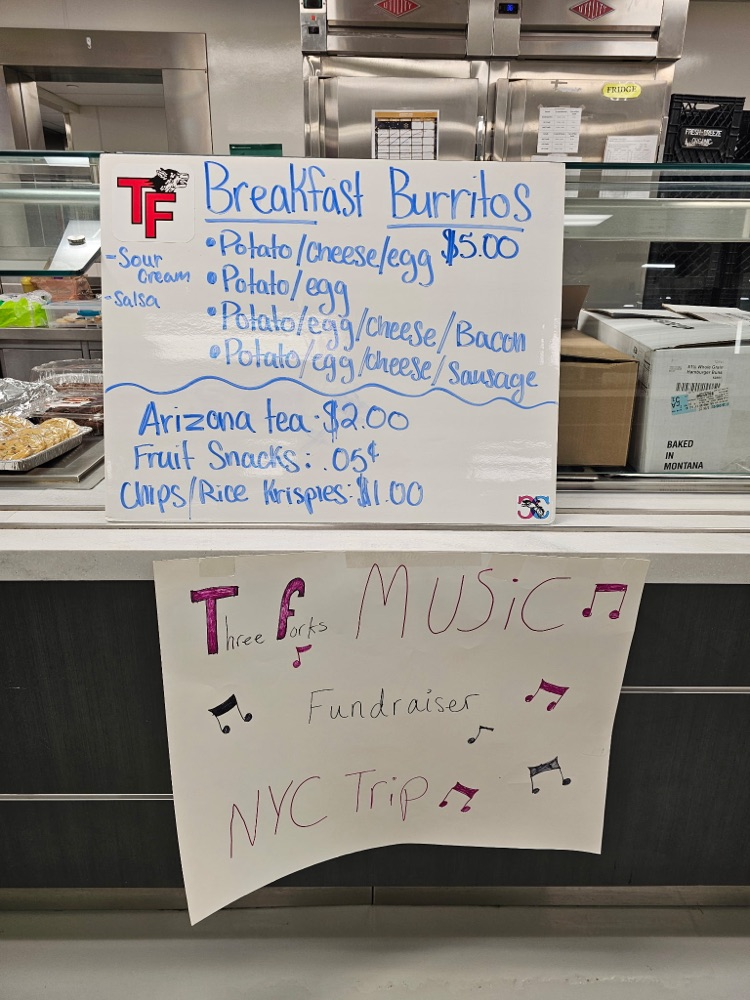 UTILITY
UTILITY
FRIDGE
FRESH-BREEZE
ORGANIC
TF
Breakfast Burritos
• Potato/cheese/egg $5.00
• Potato/egg
• Potato/egg/cheese/Bacon
• Potato/egg/cheese/sausage
- Sour
Cream
- Salsa
Arizona tea · $2.00
Fruit Snacks: .05¢
Chips/Rice Krispies · $1.00
BAKED
IN
MONTANA
Three Forks MUSIC
Fundraiser
NYC Trip